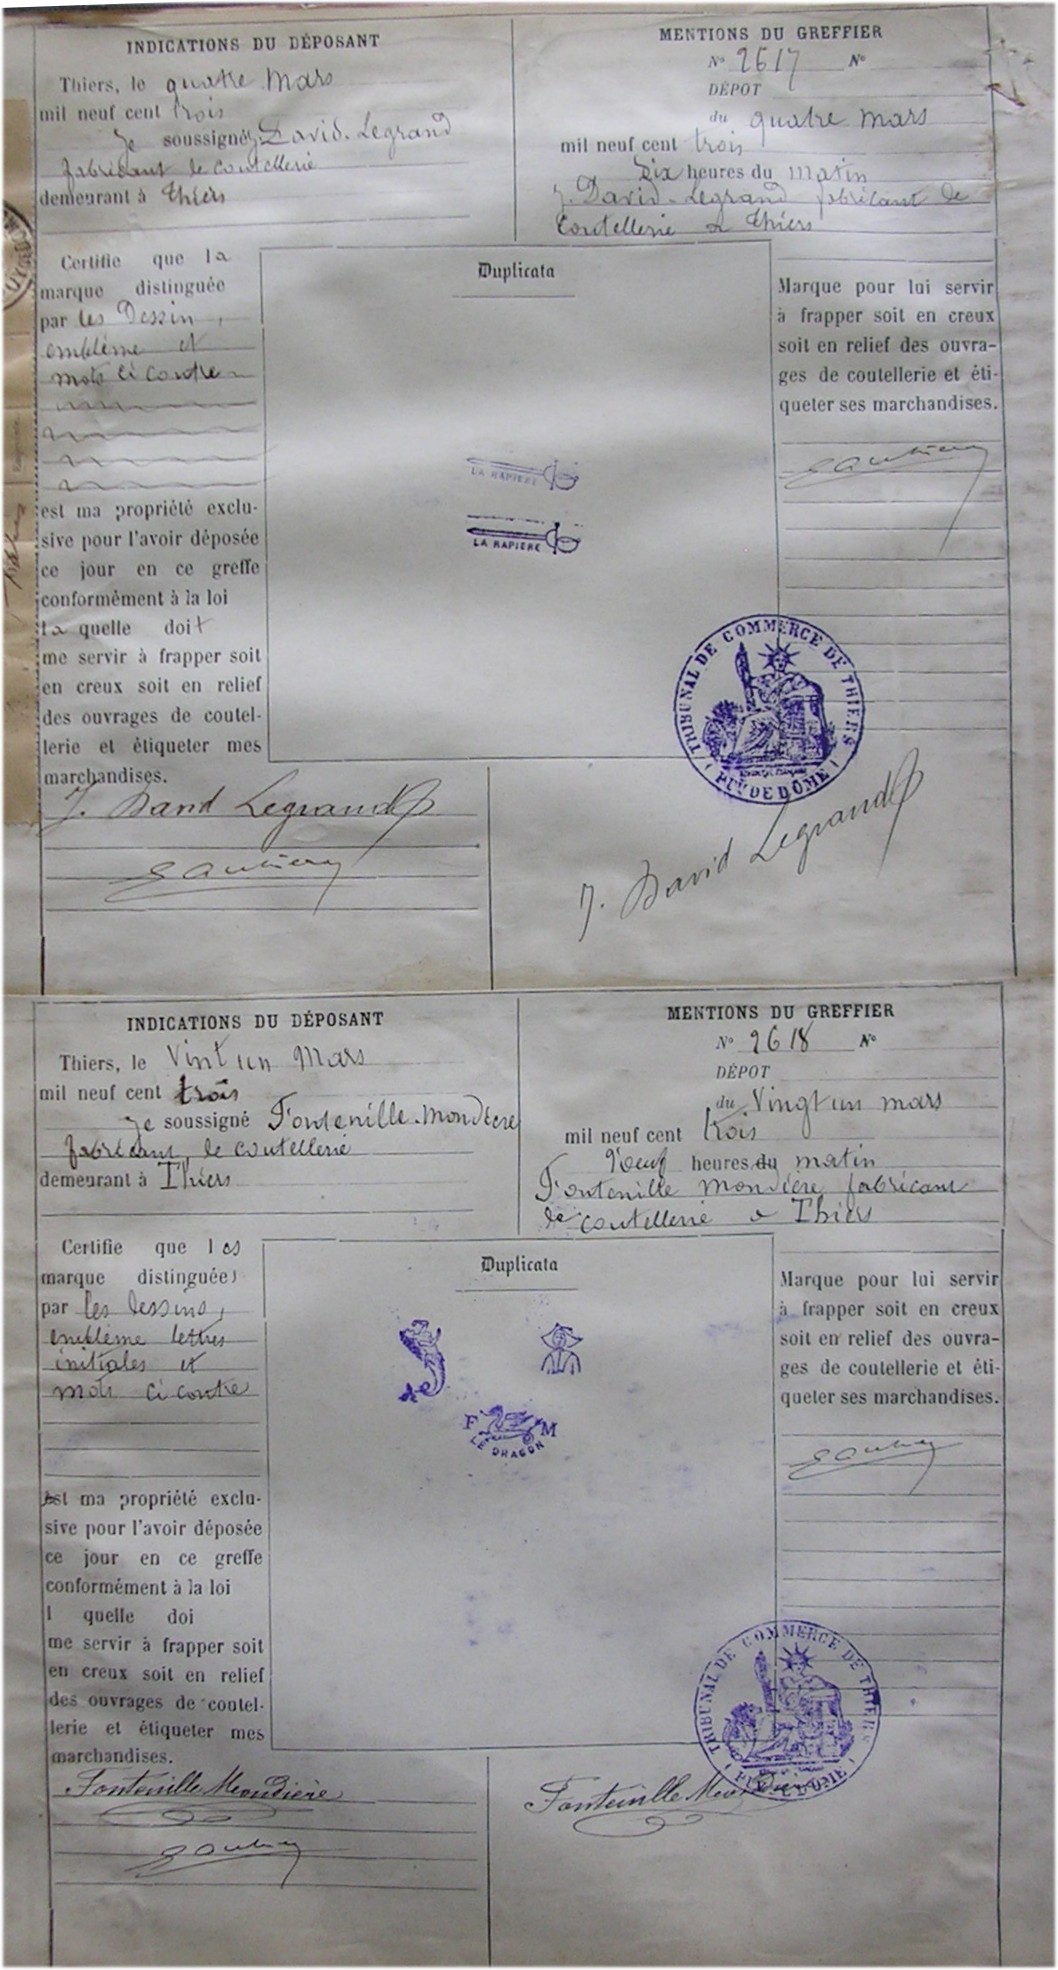 INDICATIONS DU DÉPOSANT
Thiers, le quatre Mars
mil neuf cent trois
Je soussigné J. David-Legrand
fabricant de coutellerie
demeurant à Thiers
MENTIONS DU GREFFIER
N° 2617 N°
DÉPOT
du quatre mars
mil neuf cent trois
Dix heures du matin
J. David-Legrand fabricant de
Coutellerie a Thiers
Certifie que la
marque distinguée
par les Dessin,
emblème et
mots ci contre
est ma propriété exclu-
sive pour l'avoir déposée
ce jour en ce greffe
conformément à la loi
la quelle doit
me servir à frapper soit
en creux soit en relief
des ouvrages de coutel-
lerie et étiqueter mes
marchandises.
J. David Legrand
Duplicata
LA RAPIERE
LA RAPIERE
Marque pour lui servir
à frapper soit en creux
soit en relief des ouvra-
ges de coutellerie et éti-
queter ses marchandises.
TRIBUNAL DE COMMERCE DE THIERS
(PUY DE DÔME)
J. David Legrand
INDICATIONS DU DÉPOSANT
Thiers, le Vint un Mars
mil neuf cent trois
Je soussigné Fontenille-Mondière
fabricant de coutellerie
demeurant à Thiers
MENTIONS DU GREFFIER
N° 2618 N°
DÉPOT
du Vingt un mars
mil neuf cent trois
Neuf heures du matin
Fontenille Mondière fabricant
de coutellerie a Thiers
Certifie que les
marque distinguées
par les dessins,
emblème lettres
initiales et
mots ci contre
est ma propriété exclu-
sive pour l'avoir déposée
ce jour en ce greffe
conformément à la loi
l quelle doi
me servir à frapper soit
en creux soit en relief
des ouvrages de coutel-
lerie et étiqueter mes
marchandises.
Fontenille Mondière
Duplicata
F M
LE DRAGON
Marque pour lui servir
à frapper soit en creux
soit en relief des ouvra-
ges de coutellerie et éti-
queter ses marchandises.
TRIBUNAL DE COMMERCE DE THIERS
(PUY DE DÔME)
Fontenille Mondière